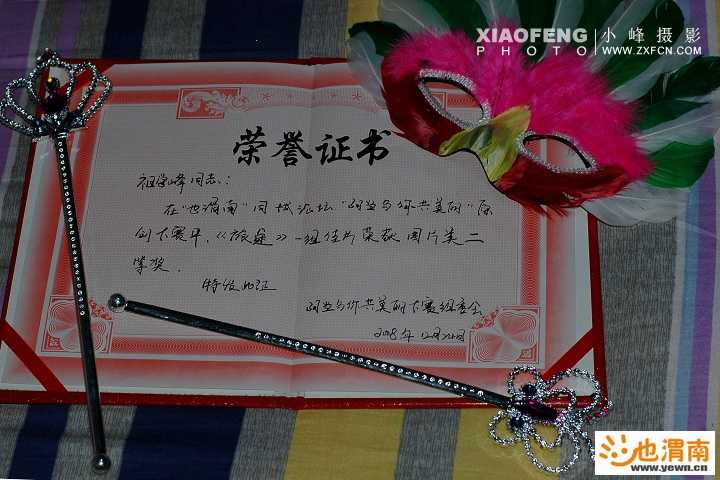 XIAOFENG 小峰摄影
PHOTO WWW.ZXFCN.COM
荣誉证书
祖学峰同志:
在"也渭南"同城论坛"阿兰与你共美丽"原
创大赛中,《旅途》一组佳片荣获图片类二
等奖。
特发此证
与你共美丽大赛组委会
2008年12月22日
也渭南
www.yewn.cn